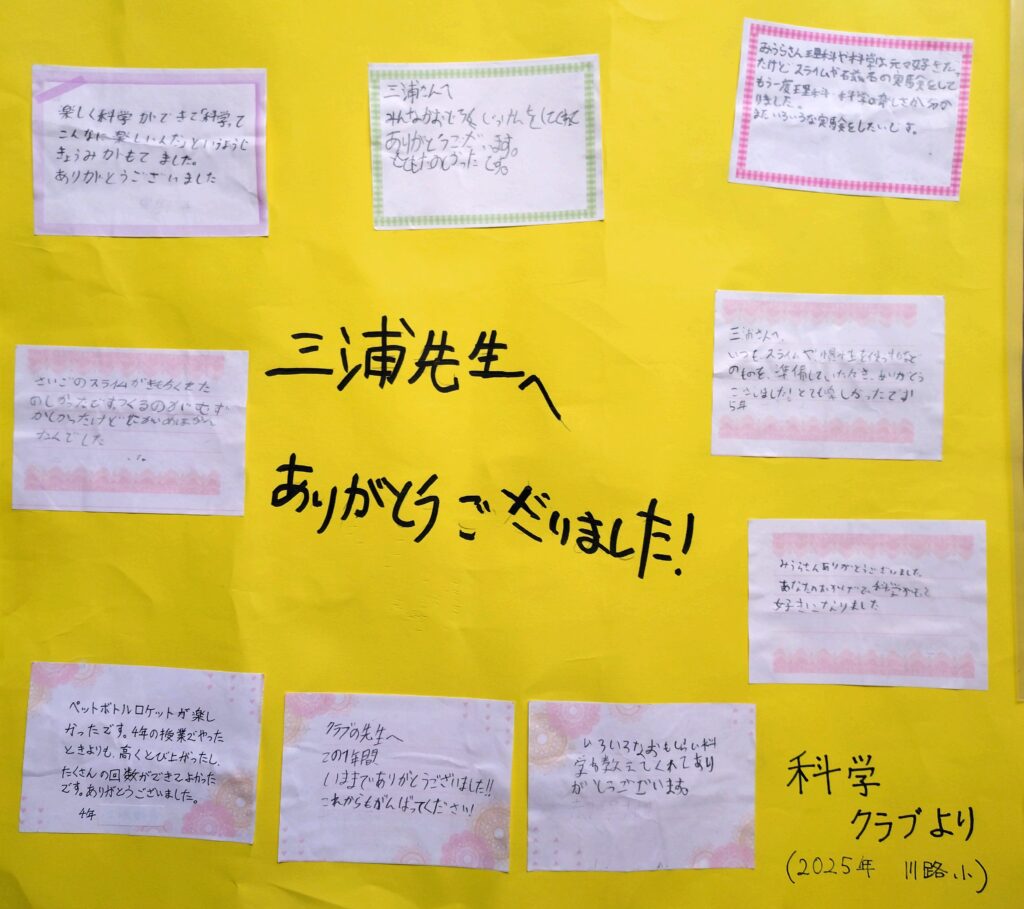 楽しく科学ができて「科学って
こんなに楽しいんだ」というように
きょうみがもてました。
ありがとうございました
三浦さんへ
みんなが
ありがとうございます。
とてもたのしかったです。
みうらさん理科や科学は元々好きだっ
たけどスライムや の実験をして
もう一度理科 科学の楽しさが分か
りました。
またいろいろな実験をしたいです。
三浦先生へ
ありがとうございました!
さいごのスライムが た
のしかったです。つくるのがむず
かしかったけど
たんでした
三浦さんへ
いつも、スライムや、 を使った
のものを、準備していただき、ありがとう
ございました!とても楽しかったです!
5年
みうらさんありがとうございました。
あなたのおかげで、科学がもっと
好きになりました
ペットボトルロケットが楽し
かったです。4年の授業でやった
ときよりも、高くとび上がったし、
たくさんの回数ができてよかった
です。ありがとうございました。
4年
クラブの先生へ
この1年間
いままでありがとうございました!!
これからもがんばってください!
いろいろなおもしろい科
学を教えてくれてあり
がとうございます。
科学
クラブより
(2025年 川路小)